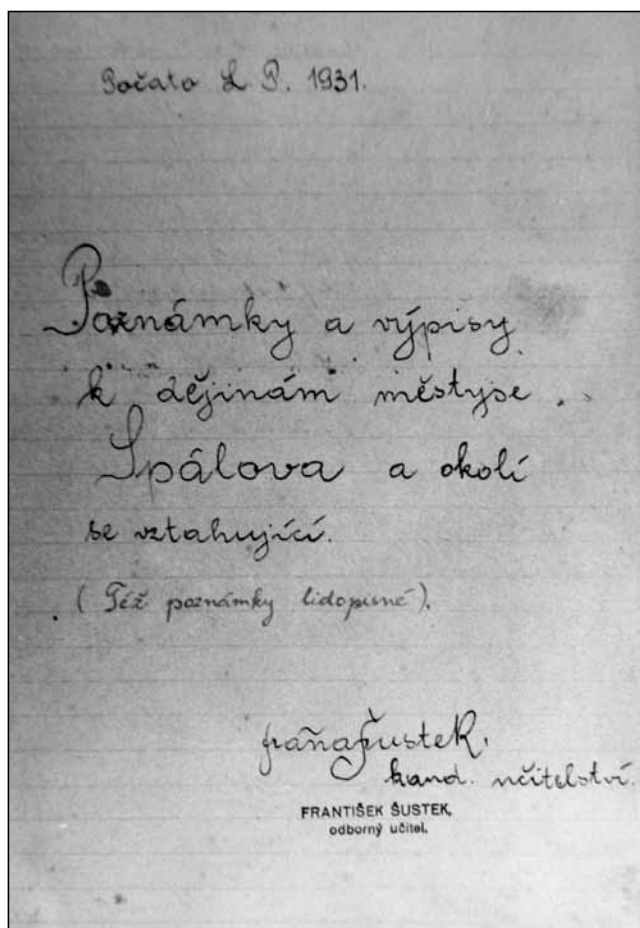 Počato L. P. 1931.
Poznámky a výpisy
k dějinám městyse
Spálova a okolí
se vztahující.
(Též poznámky lidopisné).
fráňa Šustek.
kand. učitelství.
FRANTIŠEK ŠUSTEK,
odborný učitel.